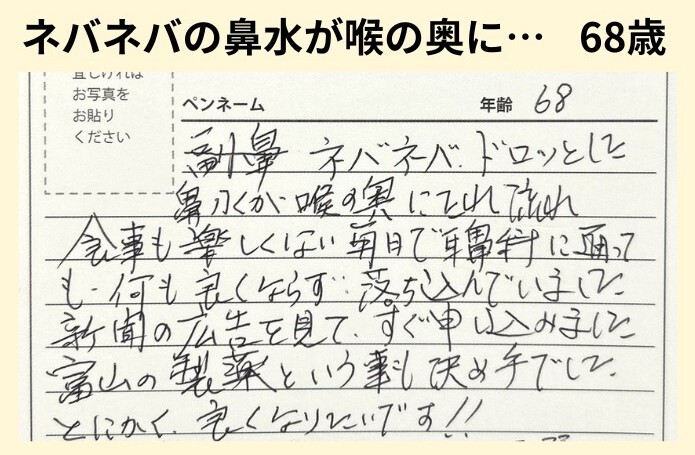 ネバネバの鼻水が喉の奥に… 68歳
宜しければ
お写真を
お貼り
ください
ペンネーム 年齢 68
ネバネバ、ドロッとした
鼻水が喉の奥にたれ流れ
食事も楽しくない毎日で耳鼻科に通って
も、何も良くならず…落ち込んでいました
新聞の広告を見て、すぐ申し込みました
富山の製薬という事も決め手でした
とにかく、良くなりたいです!!